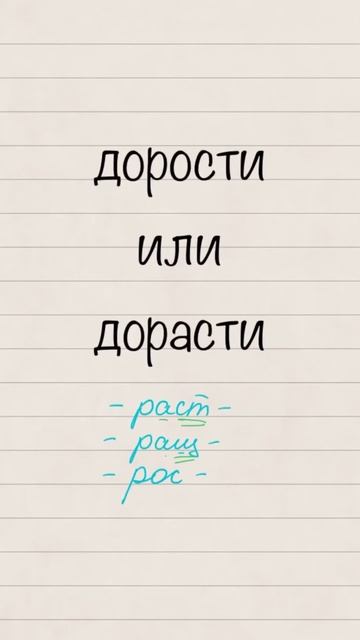 дорости
или
дорасти
- раст -
- ращ -
- рос -